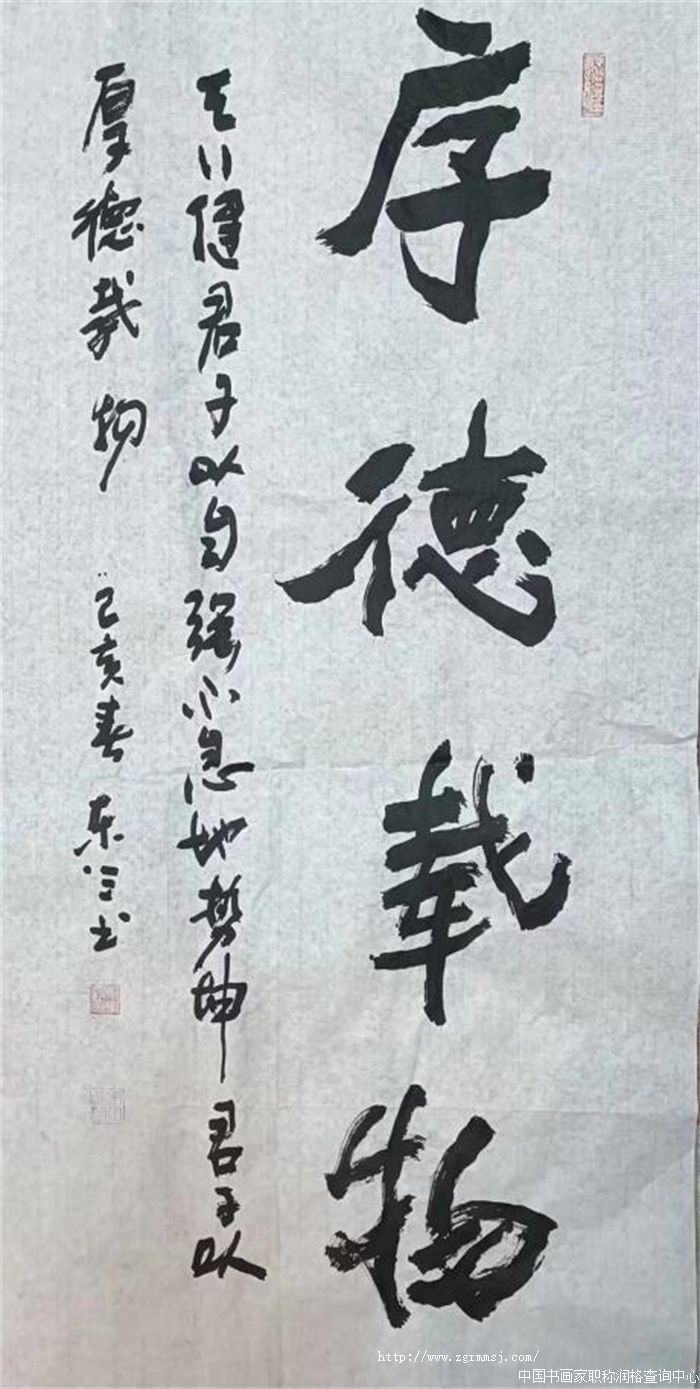 厚德载物
天行健君子以自强不息地势坤君子以
厚德载物 己亥春 东 书
http://www.zgrmmsj.com/
中国书画家职称润格查询中心